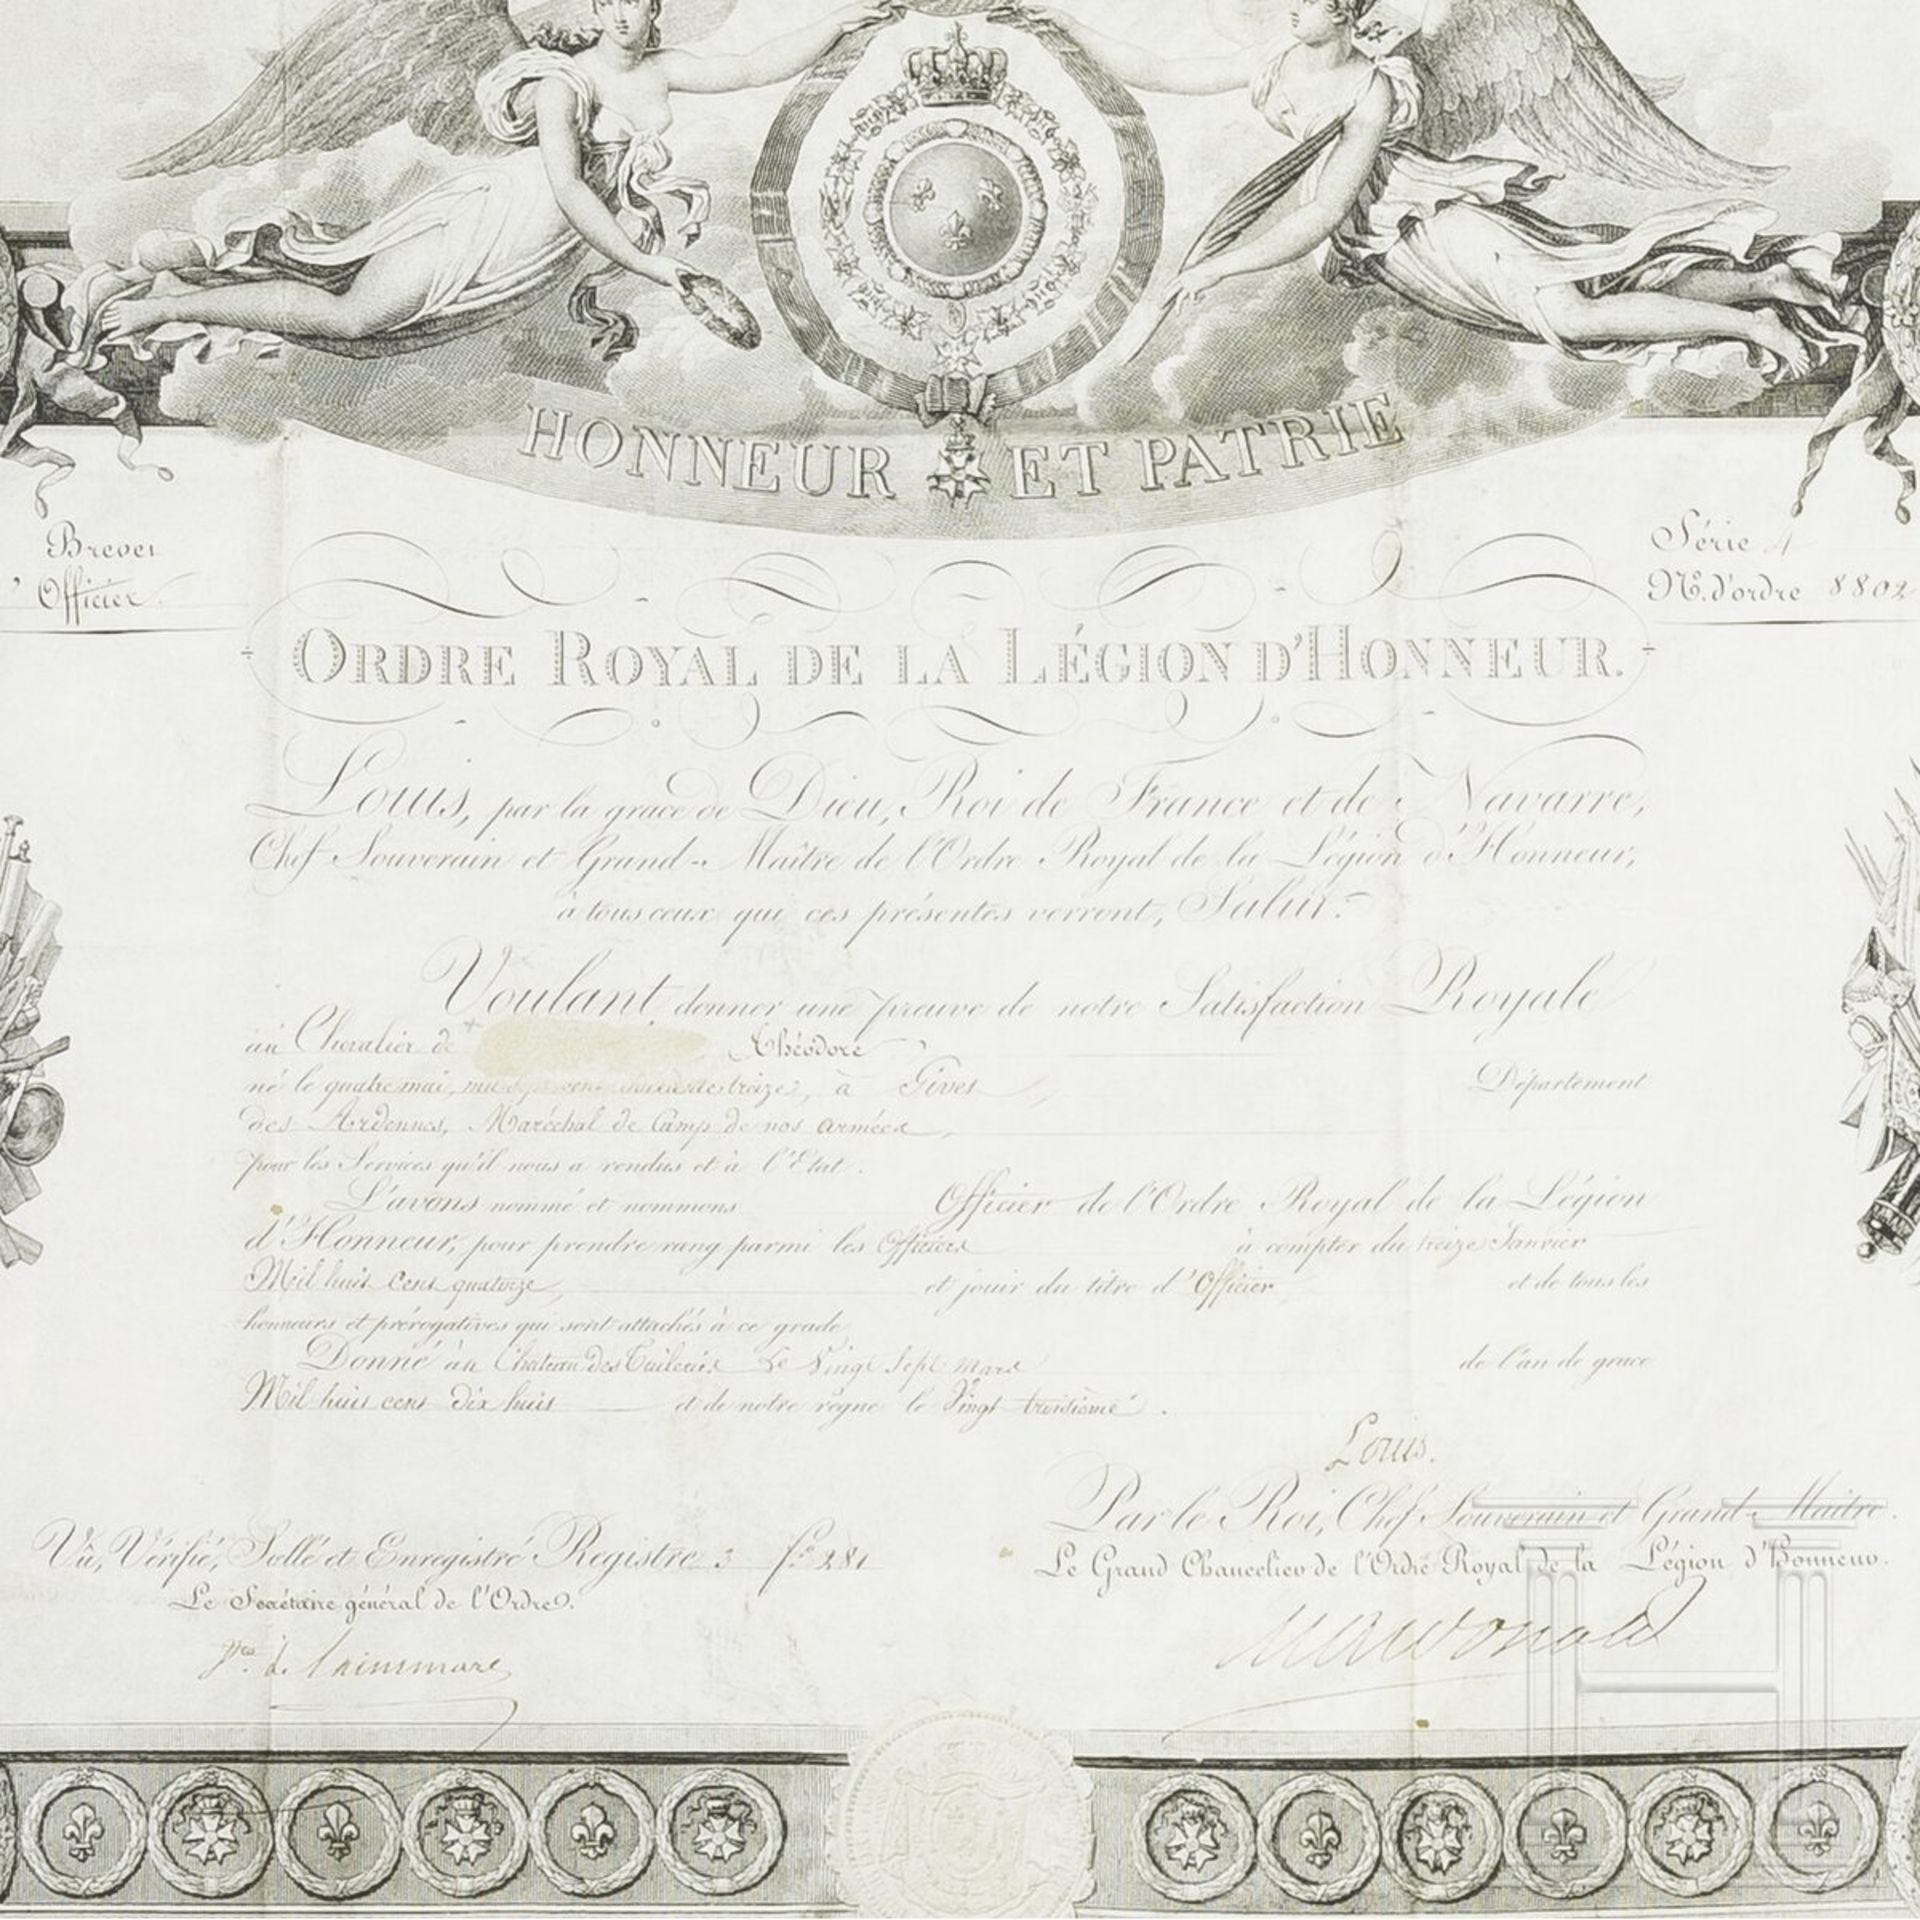 HONNEUR ET PATRIE
Brevet
' Officier.
Série 4
N.º d'ordre 8802
ORDRE ROYAL DE LA LÉGION D'HONNEUR.
Louis, par la grace de Dieu, Roi de France et de Navarre,
Chef Souverain et Grand-Maître de l'Ordre Royal de la Légion d'Honneur,
à tous ceux qui ces présentes verront, Salut.
Voulant donner une preuve de notre Satisfaction Royale
au Chevalier de Théodore
né le quatre mai, mil sept cent treize, à Givet, Département
des Ardennes, Maréchal de Camp de nos armées,
pour les Services qu'il nous a rendus et à l'Etat.
L'avons nommé et nommons Officier de l'Ordre Royal de la Légion
d'Honneur, pour prendre rang parmi les Officiers à compter du treize Janvier
Mil huit cent quatorze, et jouir du titre d'Officier et de tous les
honneurs et prérogatives qui sont attachés à ce grade
Donné au Chateau des Tuileries Le Vingt Sept mars de l'an de grace
Mil huit cent dix huit et de notre règne le Vingt troisième.
Louis.
Par le Roi, Chef Souverain et Grand-Maitre.
Le Grand Chancelier de l'Ordre Royal de la Légion d'Honneur.
Macdonald
Vû, Vérifié, Scellé et Enregistré Registre 3 f.º 281
Le Secrétaire général de l'Ordre.